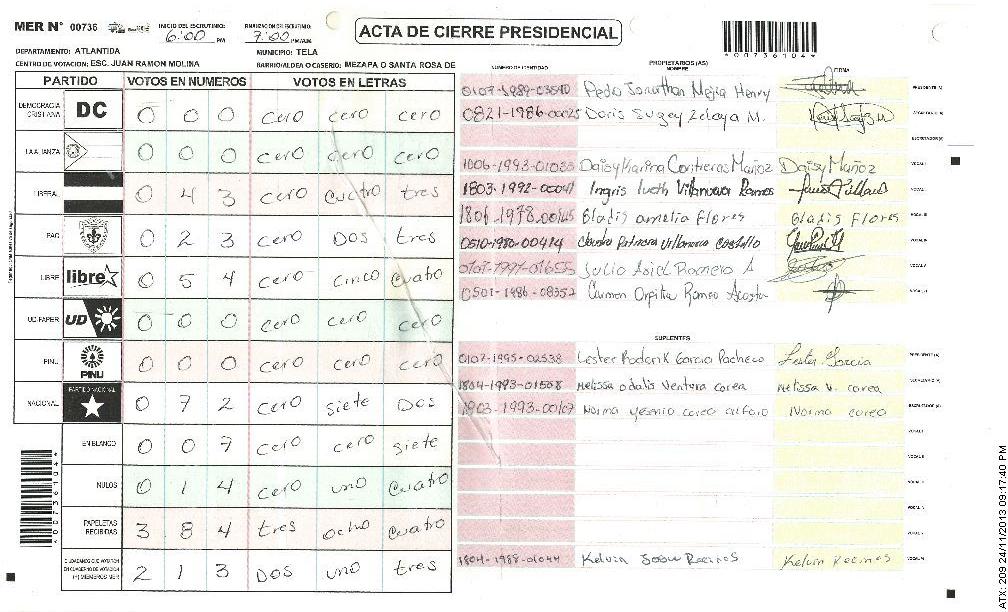 MER N° 00736 INICIO DEL ESCRUTINIO: 6:00 PM FINALIZACION DEL ESCRUTINIO: 7:00 PM/AM
ACTA DE CIERRE PRESIDENCIAL
*00736104*
DEPARTAMENTO: ATLANTIDA MUNICIPIO: TELA
CENTRO DE VOTACION: ESC. JUAN RAMON MOLINA BARRIO/ALDEA O CASERIO: MEZAPA O SANTA ROSA DE
PARTIDO VOTOS EN NUMEROS VOTOS EN LETRAS
DEMOCRACIA CRISTIANA DC 0 0 0 cero cero cero
LA ALIANZA 0 0 0 cero cero cero
LIBERAL 0 4 3 cero cuatro tres
PAC 0 2 3 cero Dos tres
LIBRE libre 0 5 4 cero cinco cuatro
UD-FAPER UD 0 0 0 cero cero cero
PINU PINU 0 0 0 cero cero cero
NACIONAL PARTIDO NACIONAL 0 7 2 cero siete Dos
EN BLANCO 0 0 7 cero cero siete
NULOS 0 1 4 cero uno cuatro
PAPELETAS RECIBIDAS 3 8 4 tres ocho cuatro
CIUDADANOS QUE VOTARON EN CUADERNO DE VOTACION (+) MIEMBROS MER 2 1 3 Dos uno tres
*00736104*
PROPIETARIOS (AS)
NUMERO DE IDENTIDAD NOMBRE FIRMA
0107-1989-03510 Pedro Jonatthan Mejia Henry PRESIDENTE (A)
0821-1986-00025 Doris Sugey Zelaya M. SECRETARIO (A)
ESCRUTADOR (A)
1006-1993-01035 Daisy Karina Contreras Muñoz Daisy Muñoz VOCAL I
1803-1992-00041 Ingris Iveth Villanueva Ramos VOCAL II
1801-1978-00145 Gladis amelia Flores Gladis Flores VOCAL III
0510-1980-00414 Villanueva Castillo VOCAL IV
0107-1991-01655 Julio Asiel Romero A VOCAL V
0501-1986-08352 Carmen Orpita Romeo Acosta VOCAL VI
SUPLENTES
0107-1995-02538 Lester Roderik Garcia Pacheco Lester Garcia PRESIDENTE (A)
1804-1993-01508 Melissa odalis Ventura corea Melissa V. corea SECRETARIO (A)
1903-1993-00107 Norma yesenia corea alfaro Norma corea ESCRUTADOR (A)
VOCAL I
VOCAL II
VOCAL III
VOCAL IV
VOCAL V
1804-1988-01044 Kelvin Josue Recinos Kelvin Recinos VOCAL VI
ATX: 209 24/11/2013 09:17:40 PM